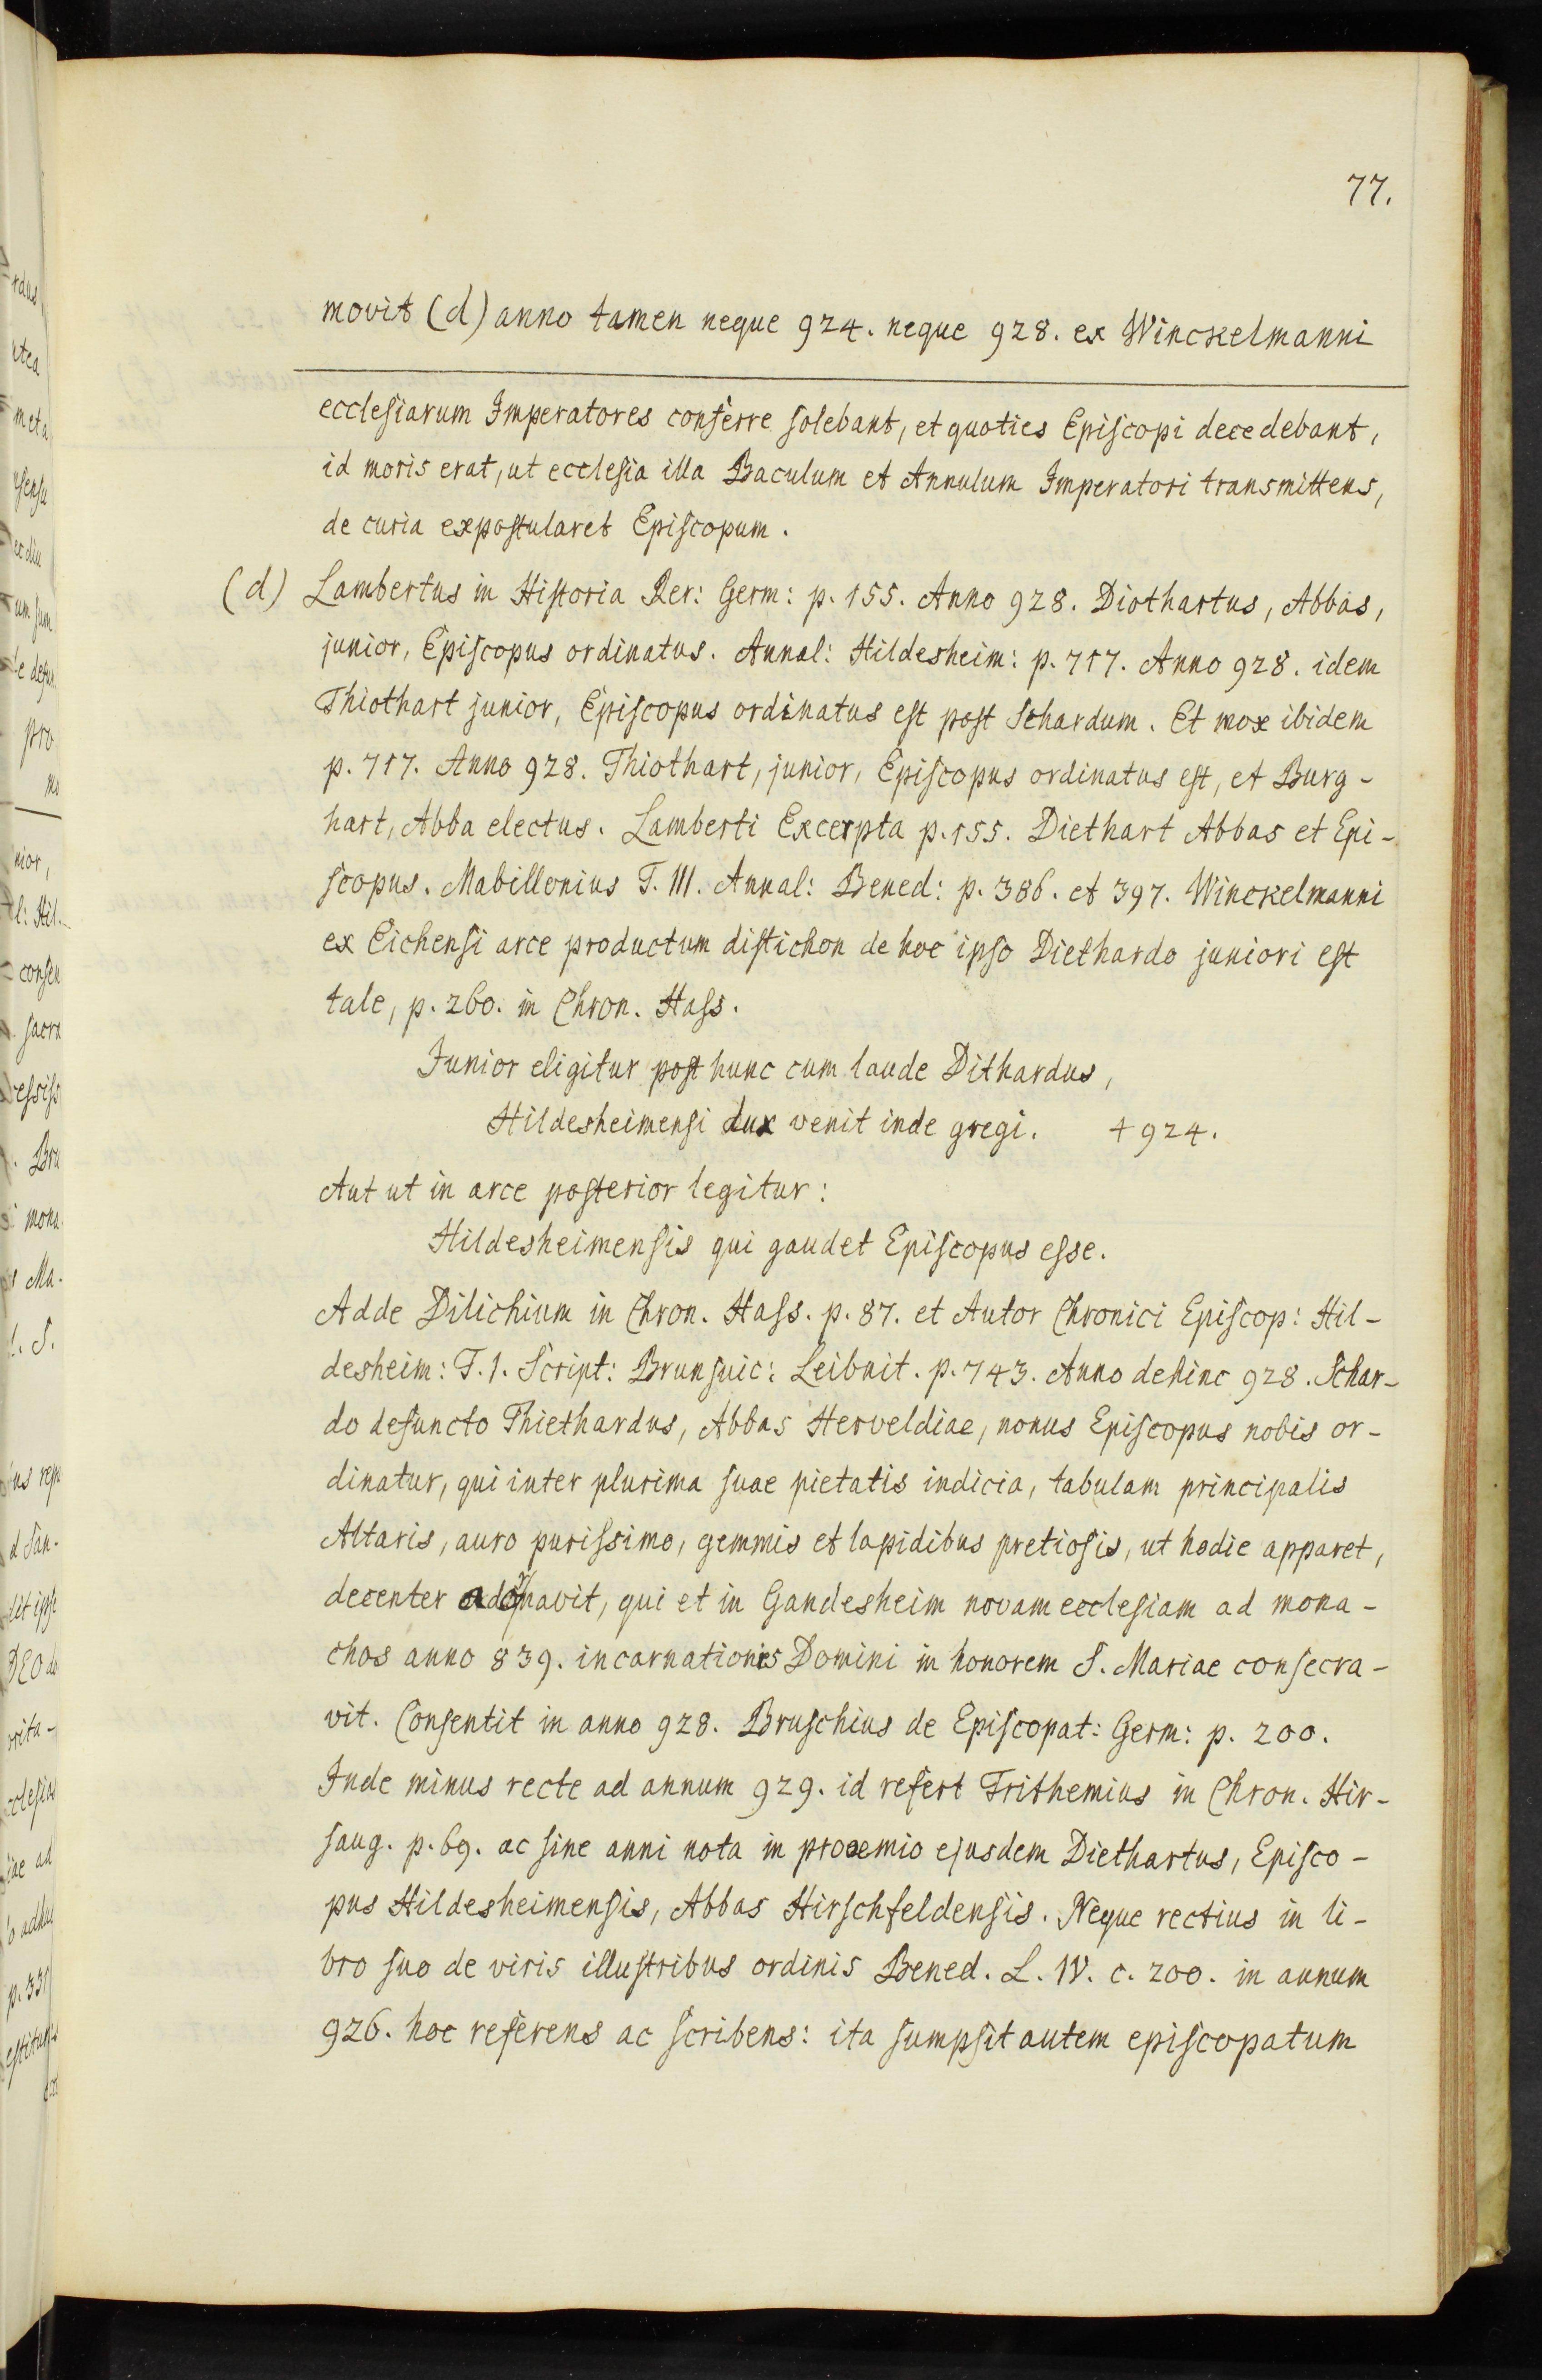 77.
movit (d) anno tamen neque 924. neque 928. ex Winckelmanni
ecclesiarum Imperatores conferre solebant, et quoties Episcopi decedebant,
id moris erat, ut ecclesia illa Baculum et Annulum Imperatori transmittens,
de curia expostularet Episcopum.
(d) Lambertus in Historia Rer: Germ: p. 155. Anno 928. Diothartus, Abbas,
junior, Episcopus ordinatus. Annal: Hildesheim: p. 717. Anno 928. idem
Thiothart junior, Episcopus ordinatus est post Sehardum. Et mox ibidem
p. 717. Anno 928. Thiothart, junior, Episcopus ordinatus est, et Burg-
hart, Abba electus. Lamberti Excerpta p. 155. Diethart Abbas et Epi-
scopus. Mabillonius T. III. Annal: Bened: p. 386. et 397. Winckelmanni
ex Eichensi arce productum distichon de hoc ipso Diethardo juniori est
tale, p. 260. in Chron. Hass.
Junior eligitur post hunc cum laude Dithardus,
Hildesheimensi dux venit inde gregi. † 924.
Aut ut in arce posterior legitur:
Hildesheimensis qui gaudet Episcopus esse.
Adde Dilichium in Chron. Hass. p. 87. et Autor Chronici Episcop: Hil-
desheim: T. 1. Script: Brunsuic: Leibnit. p. 743. Anno dehinc 928. Sehar-
do defuncto Thiethardus, Abbas Herveldiae, nonus Episcopus nobis or-
dinatur, qui inter plurima suae pietatis indicia, tabulam principalis
Altaris, auro purissimo, gemmis et lapidibus pretiosis, ut hodie apparet,
decenter adornavit, qui et in Gandesheim novam ecclesiam ad mona-
chos anno 839. incarnationis Domini in honorem S. Mariae consecra-
vit. Consentit in anno 928. Bruschius de Episcopat: Germ: p. 200.
Inde minus recte ad annum 929. id refert Trithemius in Chron. Hir-
saug. p. 69. ac sine anni nota in prooemio ejusdem Diethartus, Episco-
pus Hildesheimensis, Abbas Hirschfeldensis. Neque rectius in li-
bro suo de viris illustribus ordinis Bened. L. IV. c. 200. in annum
926. hoc referens ac scribens: ita sumpsit autem episcopatum